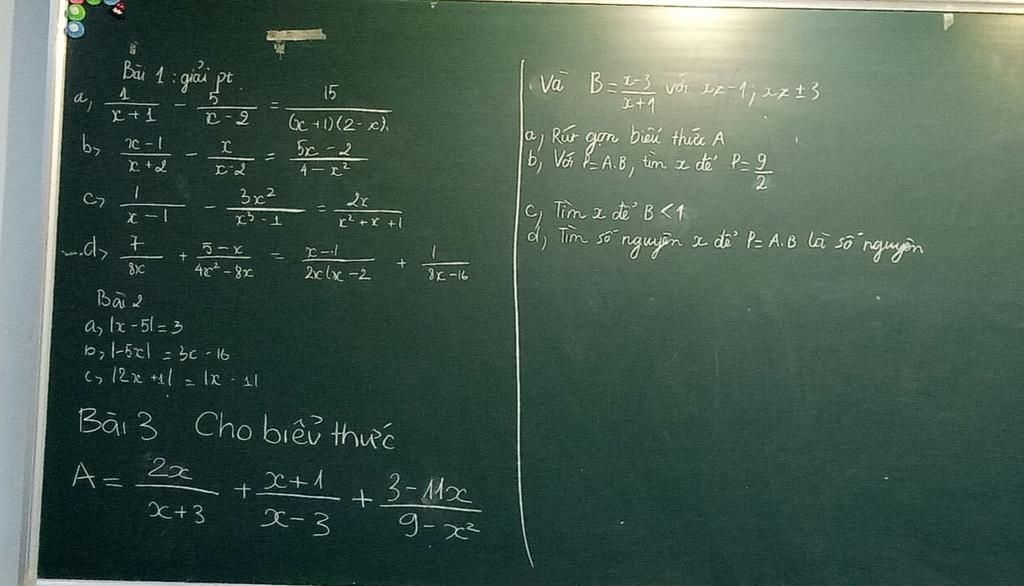 Bài 1 : giải pt
a, 1/(x+1) - 5/(x-2) = 15/((x+1)(2-x))
b, (x-1)/(x+2) - x/(x-2) = (5x-2)/(4-x²)
c, 1/(x-1) - 3x²/(x³-1) = 2x/(x²+x+1)
d, 7/(8x) + (5-x)/(4x²-8x) = (x-1)/(2x(x-2) + 1/(8x-16)
Bài 2
a, |x-5| = 3
b, |-5x| = 3x-16
c, |2x+1| = |x-1|
Bài 3 Cho biểu thức
A = 2x/(x+3) + (x+1)/(x-3) + (3-11x)/(9-x²)
Và B = (x-3)/(x+1) với x≠-1; x≠±3
a, Rút gọn biểu thức A
b, Với P=A.B, tìm x để P=9/2
c, Tìm x để B<1
d, Tìm số nguyên x để P=A.B là số nguyên